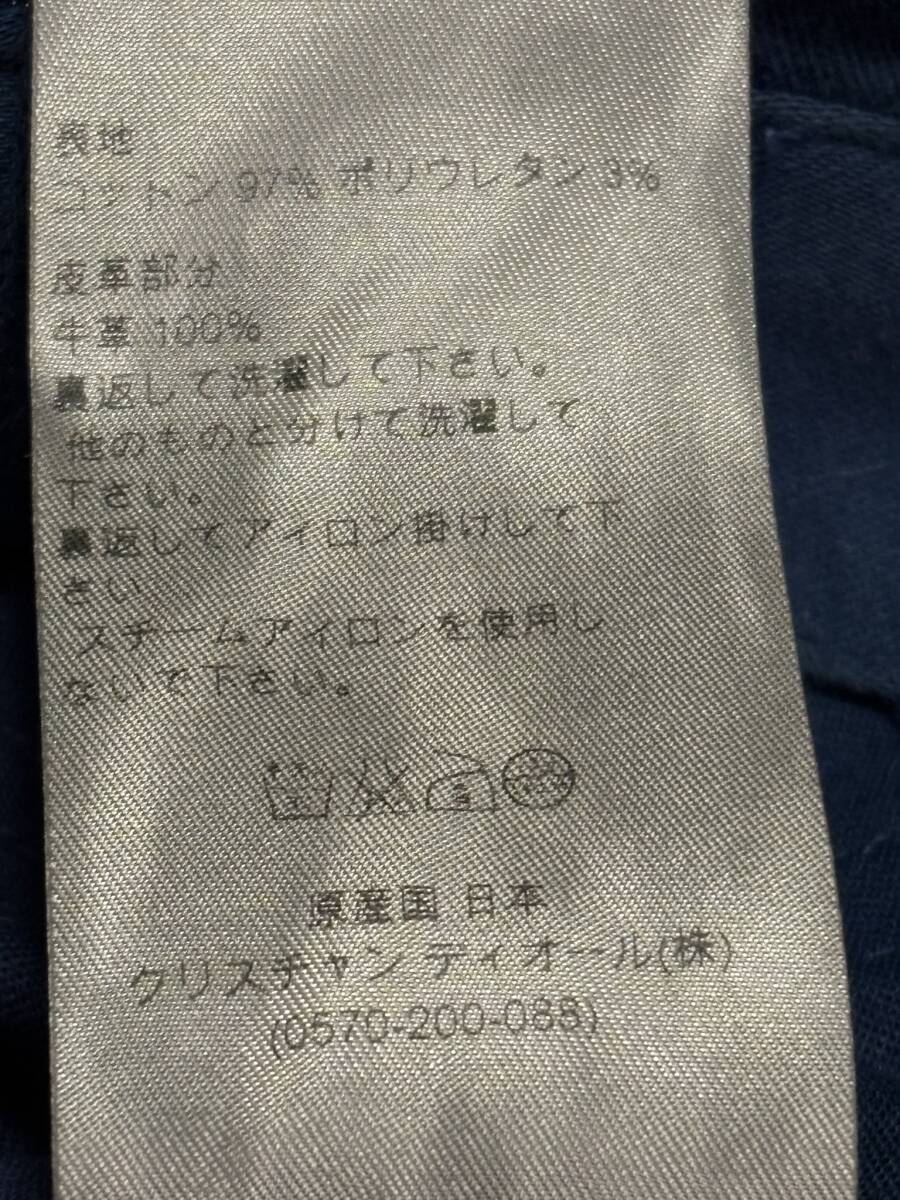 表地
コットン 97% ポリウレタン 3%
皮革部分
牛革 100%
裏返して洗濯して下さい。
他のものと分けて洗濯して
下さい。
裏返してアイロン掛けして下
さい
スチームアイロンを使用し
ないで下さい。
原産国 日本
クリスチャン ディオール(株)
(0570-200-088)